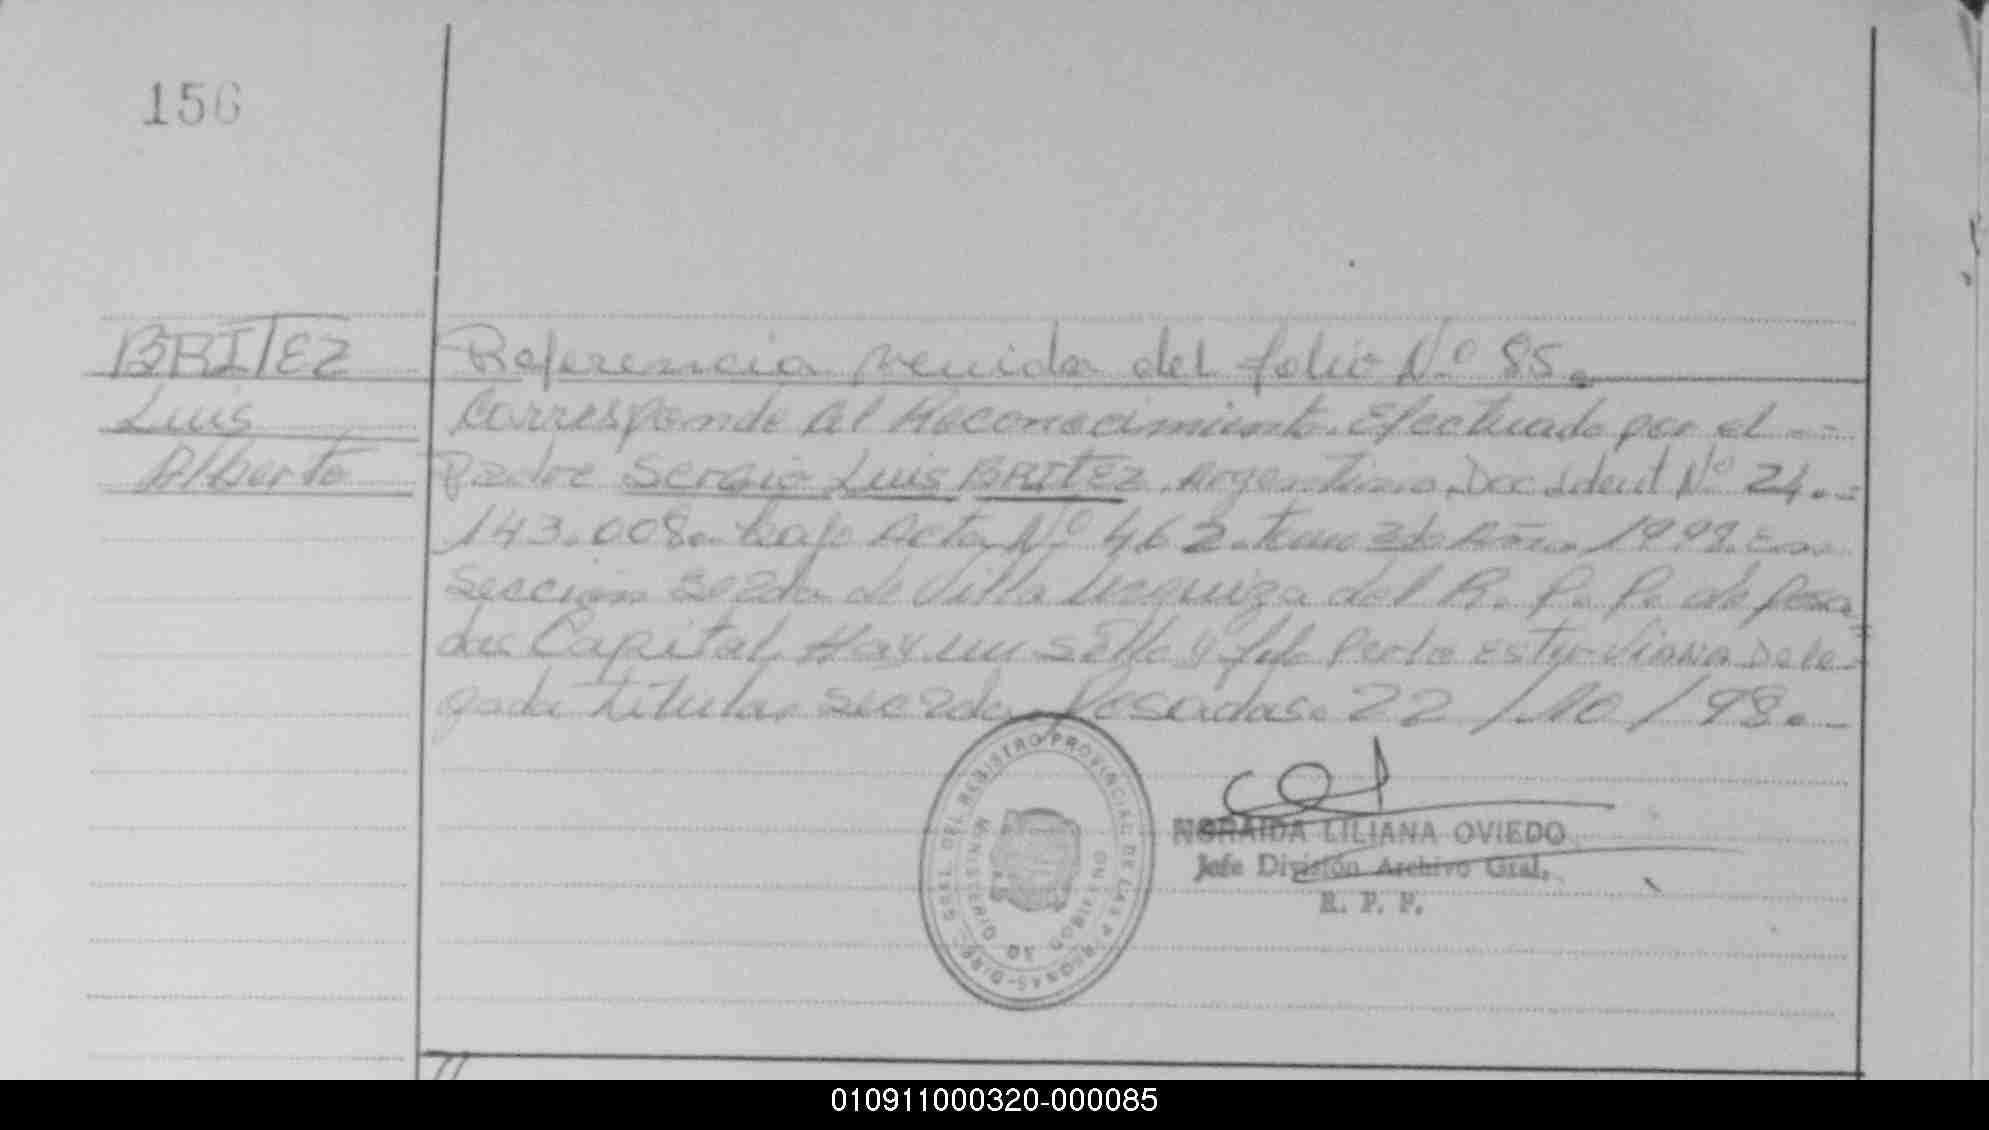 156
BRITEZ Referencia venida del folio Nº 85.
Luis Corresponde al Reconocimiento. Efectuado por el --
Alberto Padre Sergio Luis BRITEZ. Argentino. Doc. Ident Nº 24.-
143.008. bajo Acta Nº 462. tomo 3do Año. 1998.
Sección de Villa Urquiza del R. P. P. de Posa
das Capital. Hay un sello y fdo Perla Ester Viana Dele-
gada titular Posadas. 22/10/98.-
DIREC. GRAL. DEL REGISTRO PROVINCIAL DE LAS PERSONAS
MINISTERIO DE GOBIERNO
NORAIDA LILIANA OVIEDO
Jefe División Archivo Gral.
R. P. P.
010911000320-000085